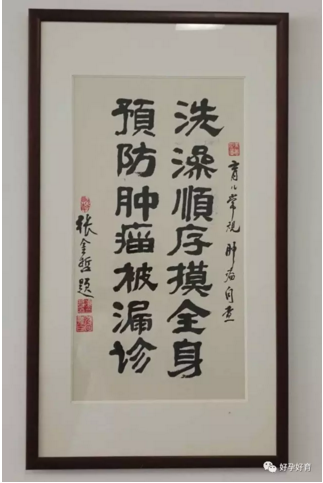 育儿常规 肿瘤自查
洗澡順序摸全身
預防肿瘤被漏诊
张金哲题
好孕好育